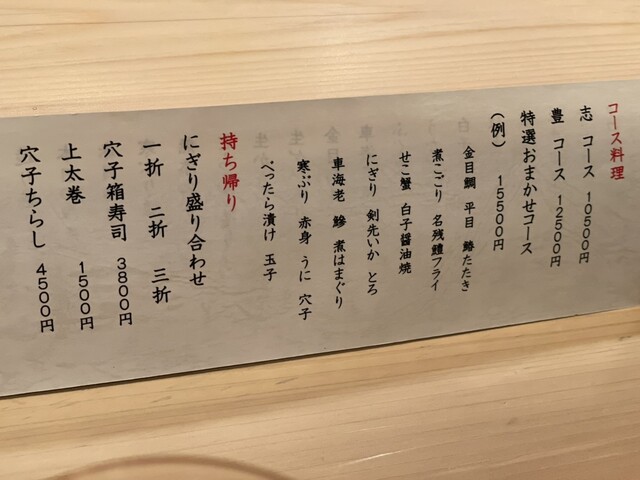 コース料理
志 コース 10500円
豊 コース 12500円
特選おまかせコース
15500円
(例)
金目鯛 平目 鰆たたき
煮こごり 名残鱧フライ
せこ蟹 白子醤油焼
にぎり 剣先いか とろ
車海老 鰺 煮はまぐり
寒ぶり 赤身 うに 穴子
べったら漬け 玉子
持ち帰り
にぎり盛り合わせ
一折 二折 三折
穴子箱寿司 3800円
上太巻 1500円
穴子ちらし 4500円